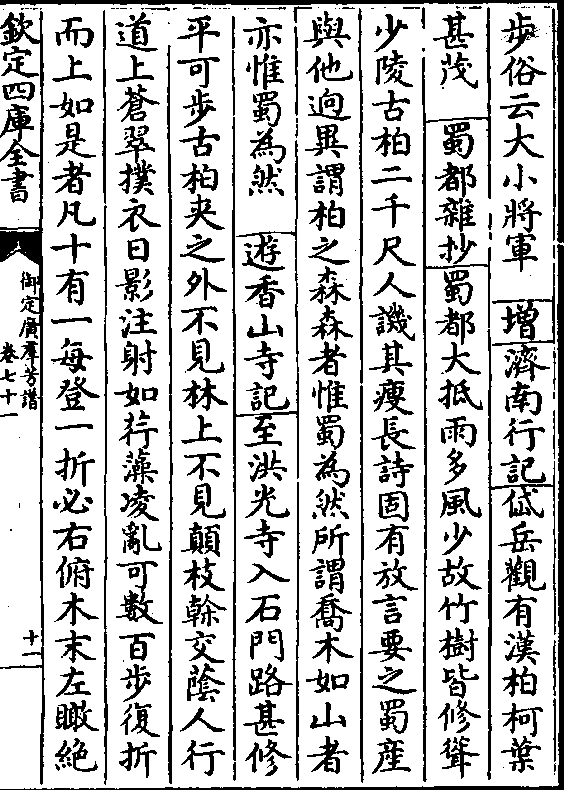 步俗云大小將軍　增濟南行記岱岳觀有漢柏柯葉
甚茂　蜀都雜抄蜀都大抵雨多風少故竹樹皆修聳
少陵古柏二千尺人譏其瘦長詩固有放言要之蜀產
與他逈異謂柏之森森者惟蜀為然所謂喬木如山者
亦惟蜀為然　遊香山寺記至洪光寺入石門路甚修
平可步古柏夾之外不見林上不見顛枝榦交蔭人行
道上蒼翠撲衣日影注射如荇藻凌亂可數百步復折
而上如是者凡十有一每登一折必右俯木末左瞰絕
欽定四庫全書
御定廣羣芳譜
卷七十一
十一